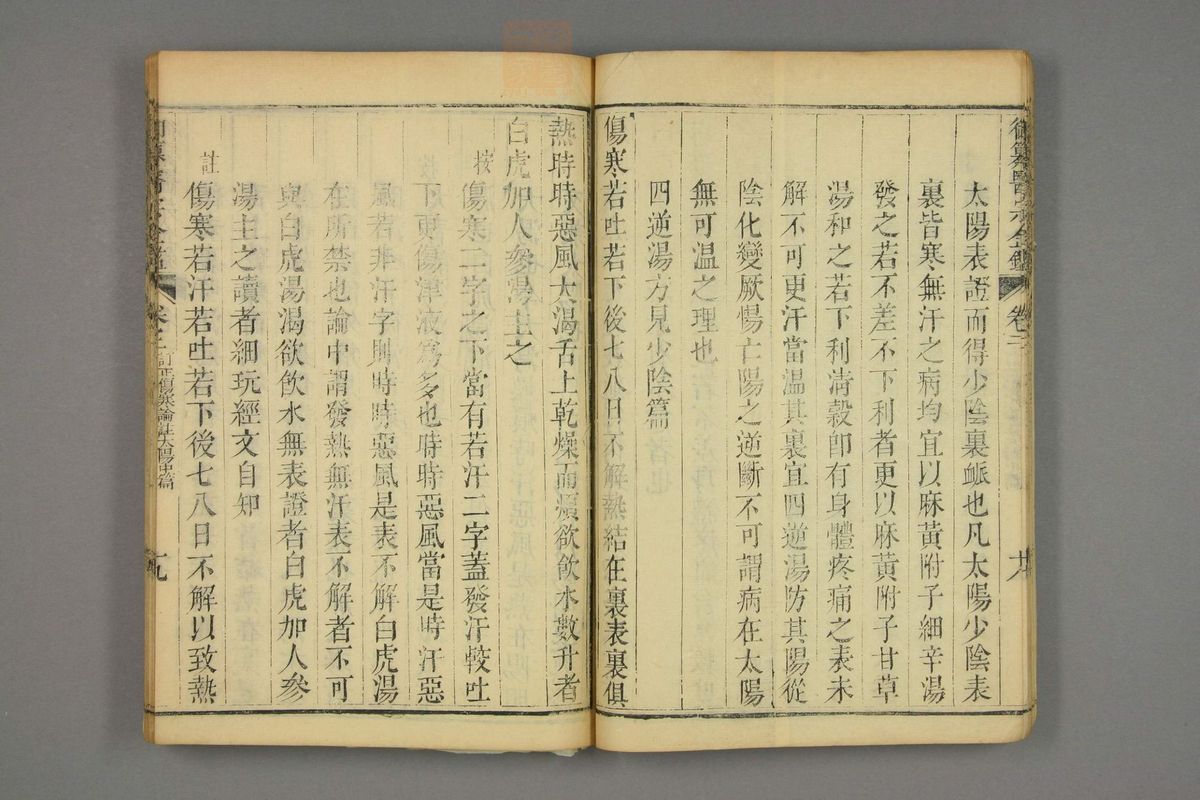 御纂醫宗金鑑 卷二
太陽表證而得少陰裏脈也凡太陽少陰表
裏皆寒無汗之病均宜以麻黃附子細辛湯
發之若不差不下利者更以麻黃附子甘草
湯和之若下利清穀即有身體疼痛之表未
解不可更汗當温其裏宜四逆湯防其陽從
陰化變厥惕亡陽之逆斷不可謂病在太陽
無可温之理也
四逆湯方見少陰篇
傷寒若吐若下後七八日不解熱結在裏表裏俱
熱時時惡風大渴舌上乾燥而煩欲飲水數升者
白虎加人參湯主之
按傷寒二字之下當有若汗二字蓋發汗較吐
下更傷津液為多也時時惡風當是時汗惡
風若非汗字則時時惡風是表不解白虎湯
在所禁也論中謂發熱無汗表不解者不可
與白虎湯渴欲飲水無表證者白虎加人參
湯主之讀者細玩經文自知
註傷寒若汗若吐若下後七八日不解以致熱
卷二 訂正傷寒論註太陽中篇